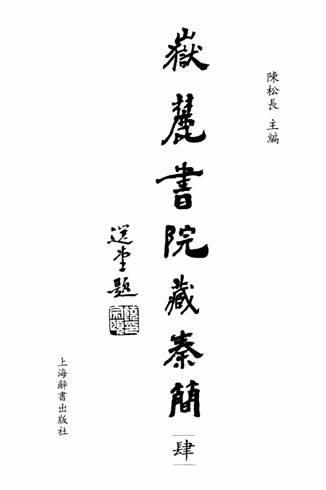 陳松長 主編
嶽麓書院藏秦簡
肆
選堂題
上海辭書出版社